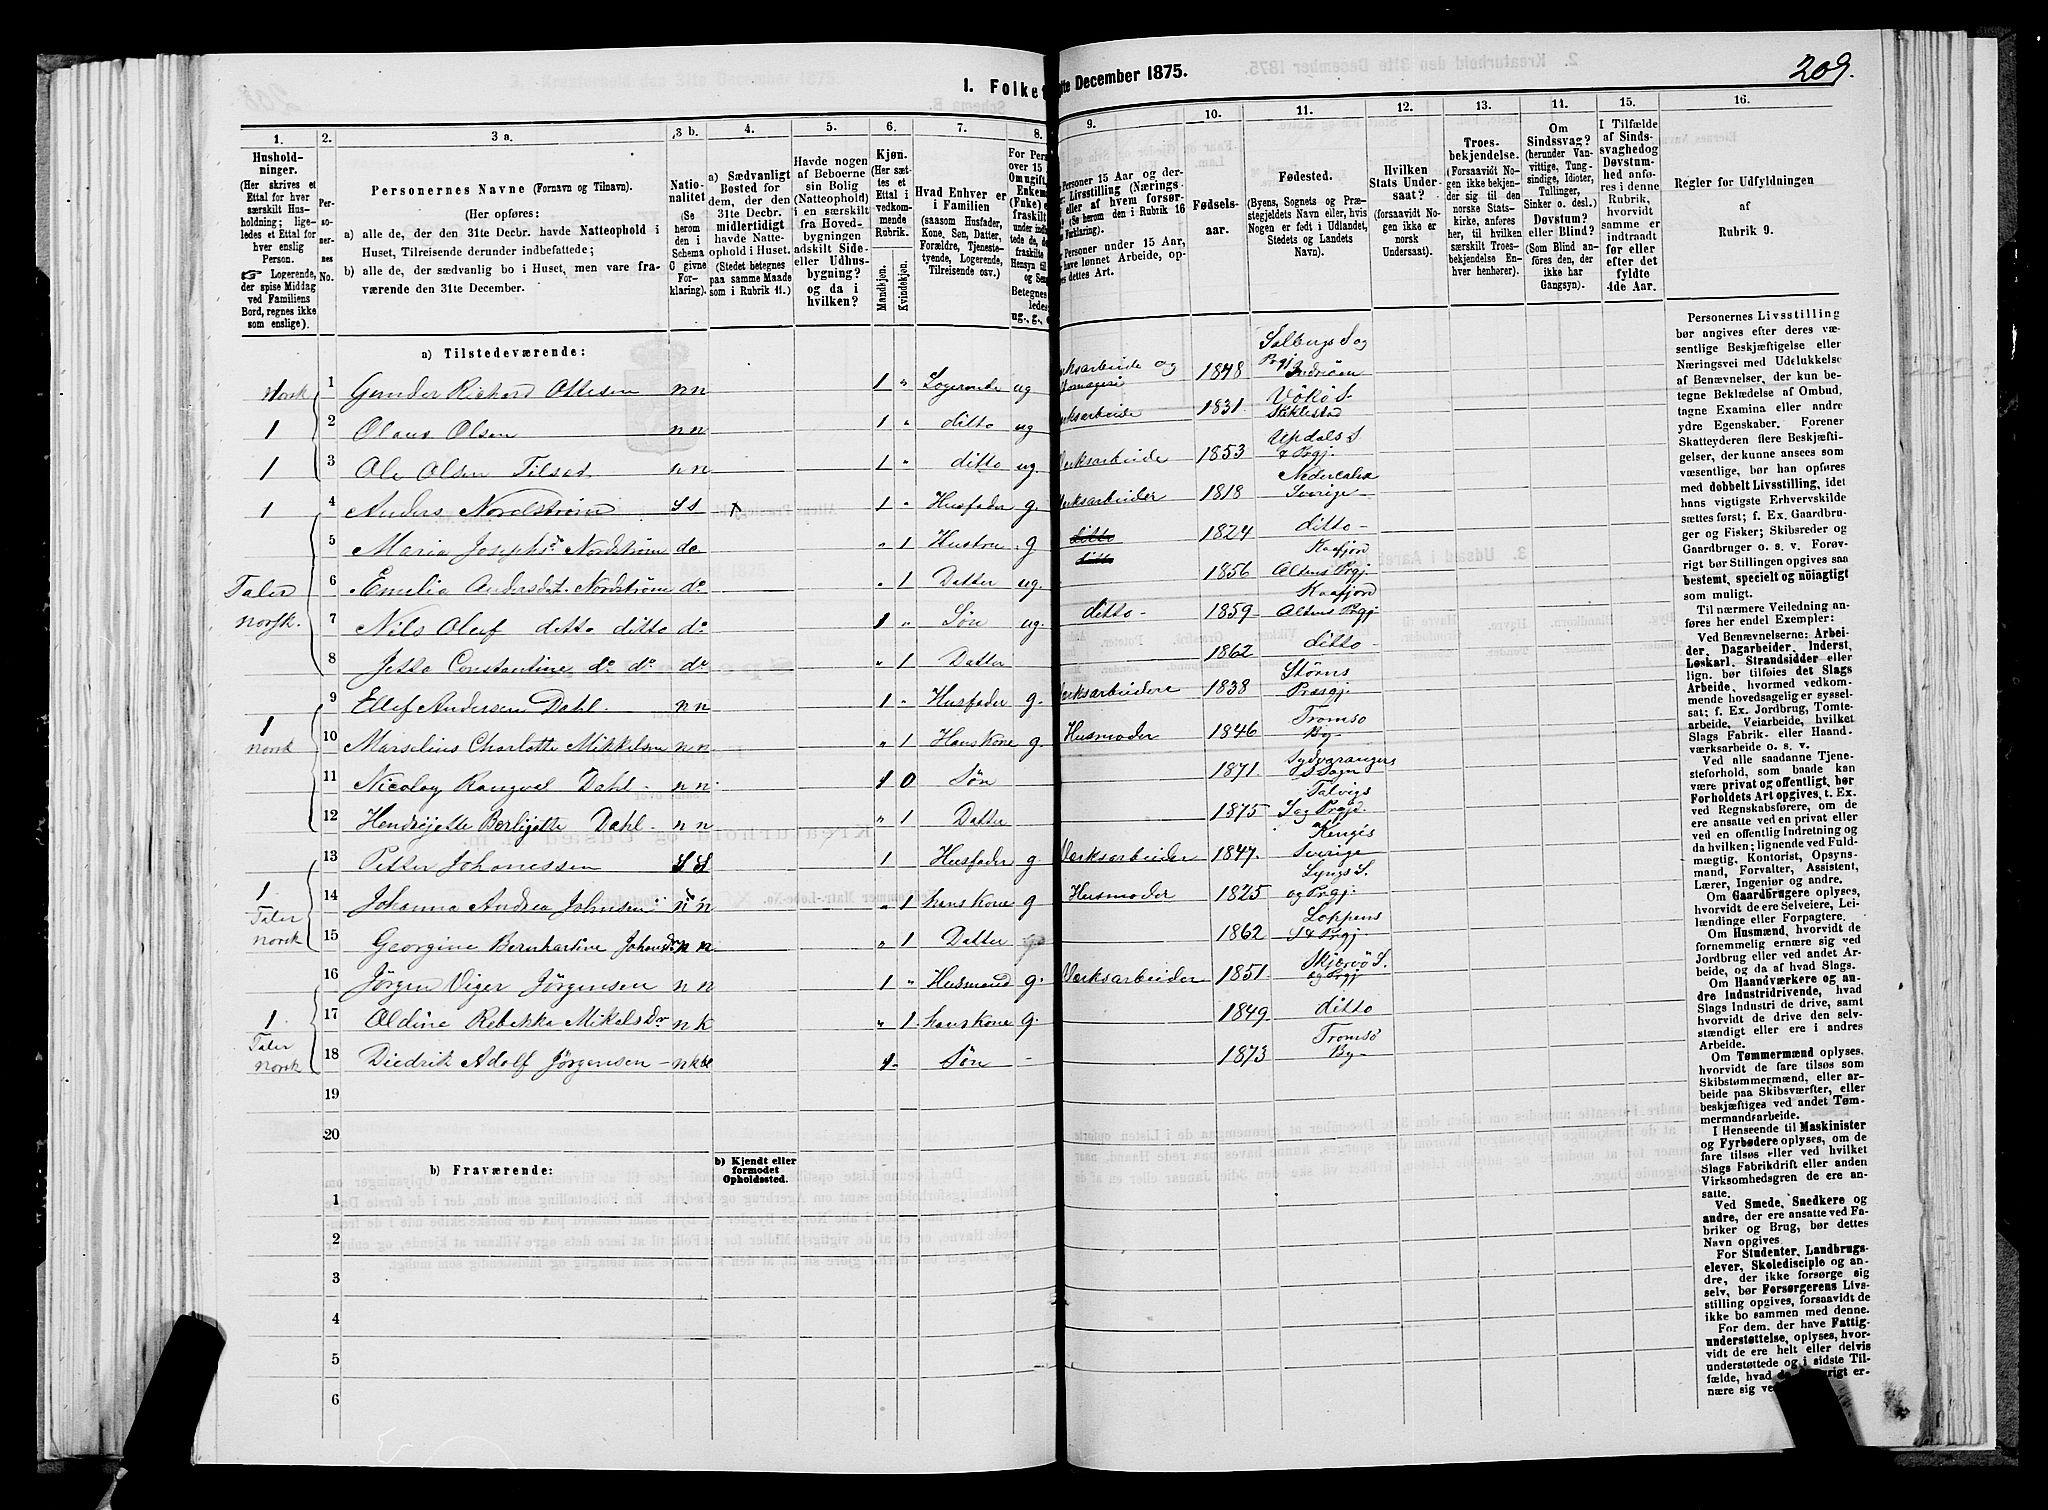 209.
I. Folket
te December 1875.
1. 2. 3 a. 3 b. 4. 5. 6. 7. 8. 9. 10. 11. 12. 13. 14. 15. 16.
Hushold-
ninger.
(Her skrives et
Ettal for hver
særskilt Hus-
holdning; lige-
ledes et Ettal for
hver enslig
Person.
☞ Logerende,
der spise Middag
ved Familiens
Bord, regnes ikke
som enslige).
Per-
so-
ner-
nes
No.
Personernes Navne (Fornavn og Tilnavn).
(Her opføres:
a) alle de, der den 31te Decbr. havde Natteophold i
Huset, Tilreisende derunder indbefattede;
b) alle de, der sædvanlig bo i Huset, men vare fra-
værende den 31te December.
Natio-
nalitet
(Se
herom
den i
Schema
C givne
For-
klaring).
a) Sædvanligt
Bosted for
dem, der den
31te Decbr.
midlertidigt
havde Natte-
ophold i Huset.
(Stedet betegnes
paa samme Maade
som i Rubrik 11.)
Havde nogen
af Beboerne
sin Bolig
(Natteophold)
i en særskilt
fra Hoved-
bygningen
adskilt Side-
eller Udhus-
bygning?
og da i
hvilken?
Kjøn.
(Her sæt-
tes et
Ettal i
vedkom-
mende
Rubrik.
Mandkjøn.
Kvindekjøn.
Hvad Enhver er
i Familien
(saasom Husfader,
Kone, Søn, Datter,
Forældre, Tjeneste-
tyende, Logerende,
Tilreisende osv.)
For Pers
over 15
Omgift,
Enkem
(Enke) e
fraskilt
under in
tede de, d
fraskilte
Hensyn til
og Sen
Betegnes
ledes
ug., g., e
Personer 15 Aar og der-
r: Livsstilling (Nærings-
eller af hvem forsør-
(Se herom den i Rubrik 16
Forklaring).
Personer under 15 Aar,
have lønnet Arbeide, op-
es dettes Art.
Fødsels-
aar.
Fødested.
(Byens, Sognets og Præ-
stegjeldets Navn eller, hvis
Nogen er født i Udlandet,
Stedets og Landets
Navn).
Hvilken
Stats Under-
saat?
(forsaavidt No-
gen ikke er
norsk
Undersaat).
Troes-
bekjendelse.
(Forsaavidt No-
gen ikke bekjen-
der sig til den
norske Stats-
kirke, anføres
her, til hvilken
særskilt Troes-
bekjendelse En-
hver henhører).
Om
Sindssvag?
(herunder Van-
vittige, Tung-
sindige, Idioter,
Tullinger,
Sinker o. desl.)
Døvstum?
eller Blind?
(Som Blind an-
føres den, der
ikke har
Gangsyn).
I Tilfælde
af Sinds-
svaghedog
Døvstum-
hed anfø-
res i denne
Rubrik,
hvorvidt
samme er
indtraadt
før eller
efter det
fyldte
4de Aar.
Regler for Udfyldningen
af
Rubrik 9.
a) Tilstedeværende:
1 Norsk 1 Gunder Richard Ottesen n n 1 " Logerende ug rksarbeide og 1848 Salbergs S og Prgj Inderøen
1 2 Olaus Olsen n n 1 " ditto ug rksarbeide 1831 S. Skklestad
1 3 Ole Olsen Tilset n n 1 " ditto ug. Verksarbeide 1853 Updals S. & Prgj.
1 4 Anders Nordstrøm S S 1 " Husfader g. Verksarbeider 1818 Nedercalix Sverige
5 Maria Josephs Nordstrøm do " 1 Hustru g ditto 1824 ditto
Taler norsk. 6 Emelia Andersdat. Nordstrøm do " 1 Datter ug. ditto 1856 Kaafjord Altens Prgj.
7 Nils Oluf ditto ditto do 1 " Søn ug. ditto 1859 Kaafjord Altens Prgj
8 Jetta Constantine do do do " 1 Datter 1862 ditto
9 Ellef Andersen Dahl n n 1 " Husfader g. Verksarbeidere 1838 Præsgj.
1 norsk 10 Marselius Charlotte Mikkelsen n n " 1 Hans Kone g. Husmoder 1846 Tromsø By
11 Nicolay Rangvel Dahl n n 1 0 Søn 1871 Sydvarangers S Sogn
12 Hendrijette Berlijette Dahl n n " 1 Datter 1875 Talvigs S og Prgjd.
13 Petter Johanessen S S 1 Husfader g Verksarbeider 1847. Kengis Sverige
1. Taler norsk 14 Johanna Andrea Johnsen n n " 1 hans Kone g Husmoder 1825 Lyngs S. og Prgj.
15 Georgine Bernhartine Johansdr n n " 1 Datter 1862 Loppens S & Prgj
16 Jørgen Viger Jørgensen n n 1 " Husmand g. Verksarbeider 1851 Skjervø S. og Prgj
1 Taler norsk 17 Oldine Rebekka Mikelsdr n k " 1 hans Kone g. 1849 ditto
18 Diedrik Adolf Jørgensen n k bl 1 Søn 1873 Tromsø By
19
20
b) Fraværende:
b) Kjendt eller
formodet
Opholdssted.
1
2
3
4
5
6
Personernes Livsstilling
bør angives efter deres væ-
sentlige Beskjæftigelse eller
Næringsvei med Udelukkelse
af Benævnelser, der kun be-
tegne Beklædelse af Ombud,
tagne Examina eller andre
ydre Egenskaber. Forener
Skatteyderen flere Beskjæfti-
gelser, der kunne ansees som
væsentlige, bør han opføres
med dobbelt Livsstilling, idet
hans vigtigste Erhvervskilde
sættes først; f. Ex. Gaardbru-
ger og Fisker; Skibsreder og
Gaardbruger o. s. v. Forøv-
rigt bør Stillingen opgives saa
bestemt, specielt og nøiagtigt
som muligt.
Til nærmere Veiledning an-
føres her endel Exempler:
Ved Benævnelserne: Arbei-
der, Dagarbeider, Inderst,
Løskarl, Strandsidder eller
lign. bør tilføies det Slags
Arbeide, hvormed vedkom-
mende hovedsagelig er syssel-
sat; f. Ex. Jordbrug, Tomte-
arbeide, Veiarbeide, hvilket
Slags Fabrik- eller Haand-
værksarbeide o. s. v.
Ved alle saadanne Tjene-
steforhold, som baade kan
være privat og offentligt, bør
Forholdets Art opgives, t. Ex.
ved Regnskabsførere, om de
ere ansatte ved en privat eller
ved en offentlig Indretning og
da hvilken; lignende ved Fuld-
mægtig, Kontorist, Opsyns-
mand, Forvalter, Assistent,
Lærer, Ingeniør og andre.
Om Gaardbrugere oplyses,
hvorvidt de ere Selveiere, Lei-
lændinge eller Forpagtere.
Om Husmænd, hvorvidt de
fornemmelig ernære sig ved
Jordbrug eller ved andet Ar-
beide, og da af hvad Slags.
Om Haandværkere og an-
dre Industridrivende, hvad
Slags Industri de drive, samt
hvorvidt de drive den selv-
stændigt eller ere i andres
Arbeide.
Om Tømmermænd oplyses,
hvorvidt de fare tilsøs som
Skibstømmermænd, eller ar-
beide paa Skibsværfter, eller
beskjæftiges ved andet Tøm-
mermandsarbeide.
I Henseende til Maskinister
og Fyrbødere oplyses, om de
fare tilsøs eller ved hvilket
Slags Fabrikdrift eller anden
Virksomhedsgren de ere an-
satte.
Ved Smede, Snedkere og
andre, der ere ansatte ved Fa-
briker og Brug, bør dettes
Navn opgives.
For Studenter, Landbrugs-
elever, Skoledisciple og an-
dre, der ikke forsørge sig
selv, bør Forsørgerens Livs-
stilling opgives, forsaavidt de
ikke bo sammen med denne.
For dem, der have Fattig-
understøttelse, oplyses, hvor-
vidt de ere helt eller delvis
understøttede og i sidste Til-
fælde, hvad
nære sig ve